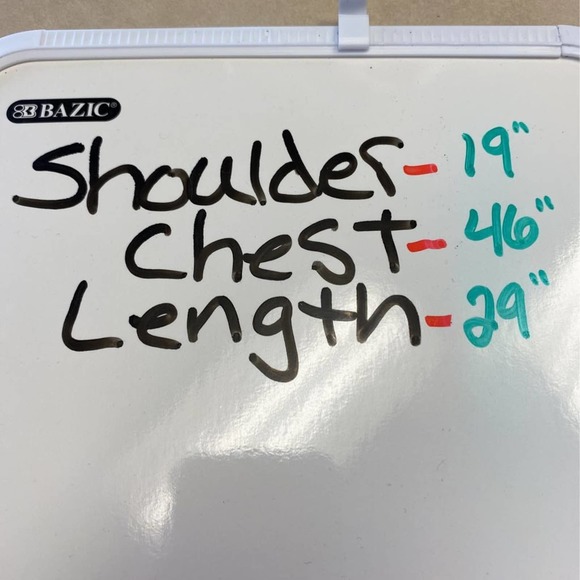 BAZIC®
Shoulder- 19"
Chest- 46"
Length- 29"